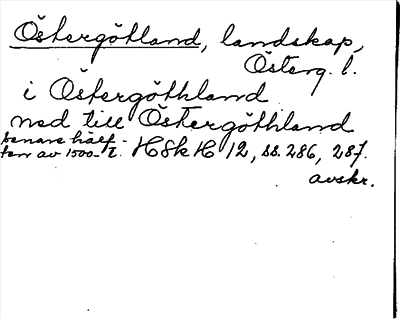 Östergötland, landskap,
Österg. l.
i Östergöthland
ned till Östergöthland
senare hälf-
ten av 1500-t. HSk H 12, ss. 286, 287.
avskr.